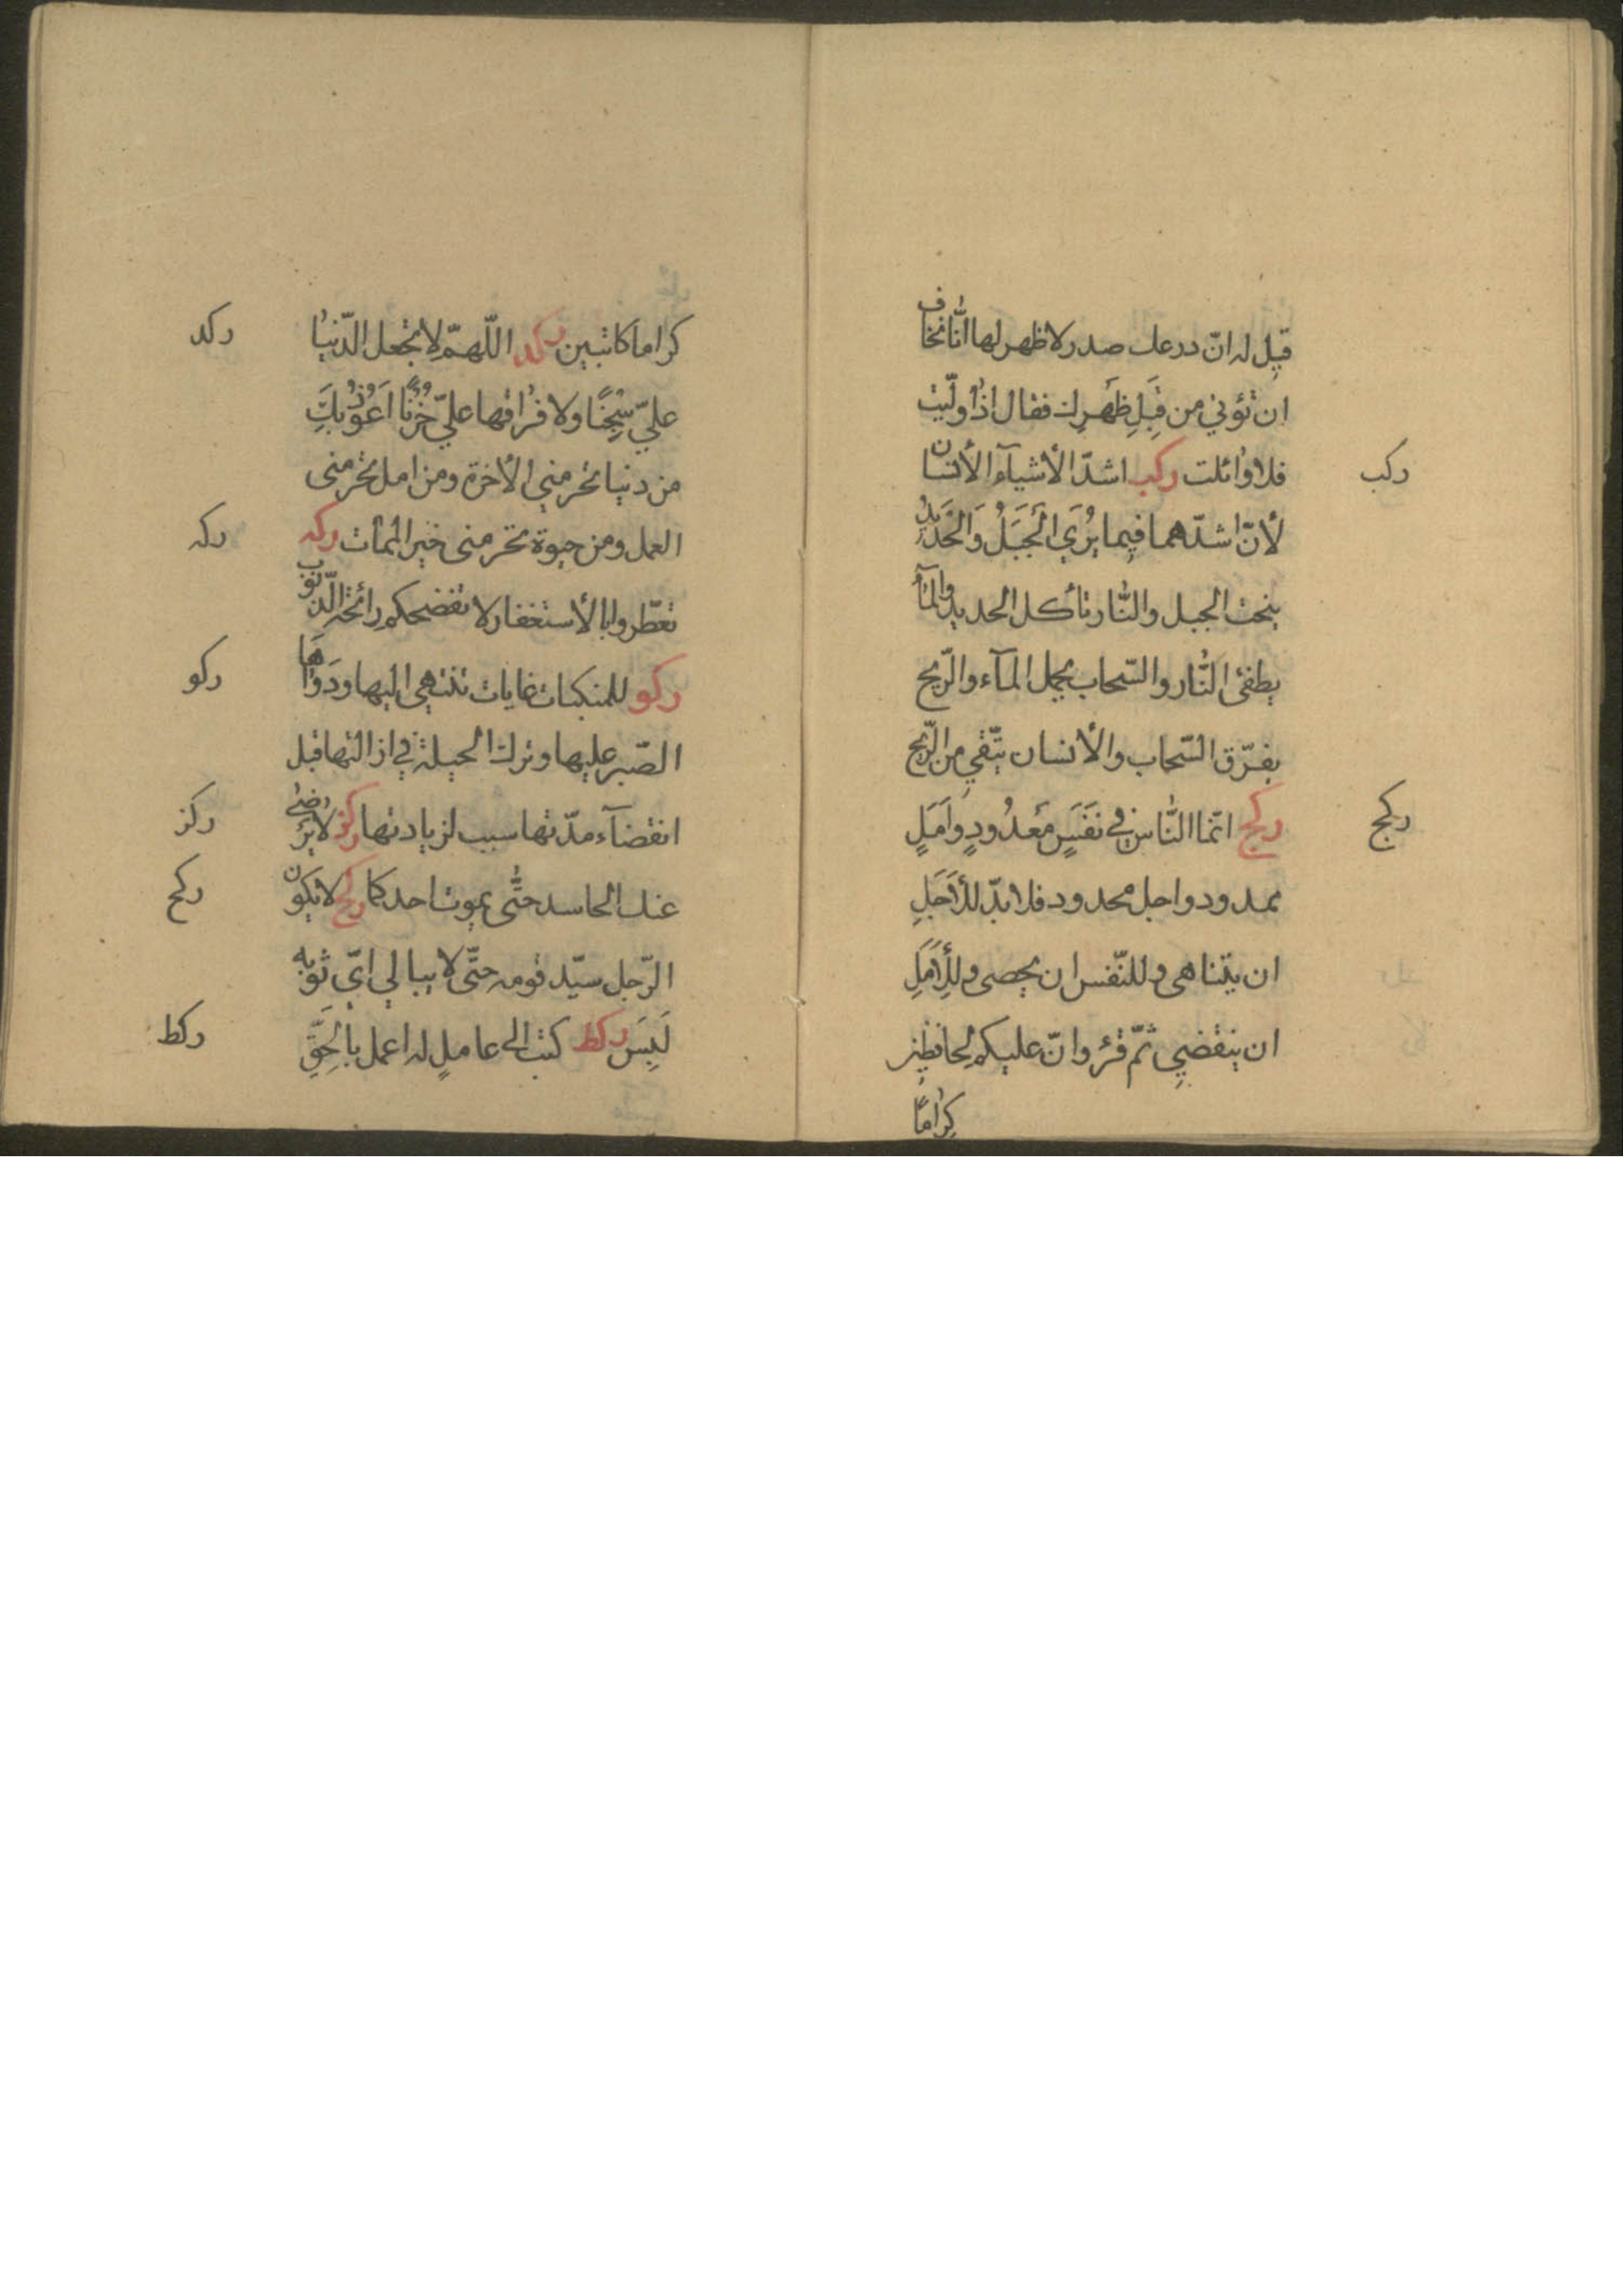 قيل له انّ درعك صدر لا ظهر لها انّا نخاف
ان تؤتي من قِبَلِ ظَهرِك فقال اذا ولّيت
فلا وائلت ركب اشدّ الأشيآء الأنسان
ركب
لأنّ اشدّهما فيما يُرَي الجَبَلُ وَالحَدَيدُ
ينحت الجبل والنّار تأكل الحديد والمآء
يطفئ النّار والسّحاب يحمل المآء والرّيح
يفرّق السّحاب والأنسان يتّقي من الرّيح
ركج انّما النّاس في نَفَسٍ مَعدُودٍ وأَمَلٍ
ركج
ممدود واجل محدود فلا بدّ للأَجَلِ
ان يتناهى وللنّفس ان يحصى وللأَمَلِ
ان ينقضي ثمّ قرء وانّ عليكم لحافظين
كِرامًا
كراما كاتبين ركد اللّهمّ لا تجعل الدّنيا
ركد
عليّ سِجنًا ولا فراقها عليّ حُزنًا اَعُوذُ بِكَ
من دنيا تحرمني الأخرة ومن امل تحرمنى
العمل ومن حيوة تحرمنى خير الممات ركه
ركه
تعطّروا بالأستغفار لا تفضحكم رائحة الذّنوب
ركو للمنكبات غايات تنتهي اليها ودَوَاهَا
ركو
الصّبر عليها وترك الحيلة في ازالتها قبل
انقضآء مدّتها سبب لزيادتها ركز لا يرضى
ركز
عنك الحاسد حتّى يموت احدكما ركح لا يكون
ركح
الرّجل سيّد قومه حتّى لا يبالي ايّ ثوبيه
لَبِسَ ركط كتب الى عاملٍ له اعمل بالحَقِّ
ركط